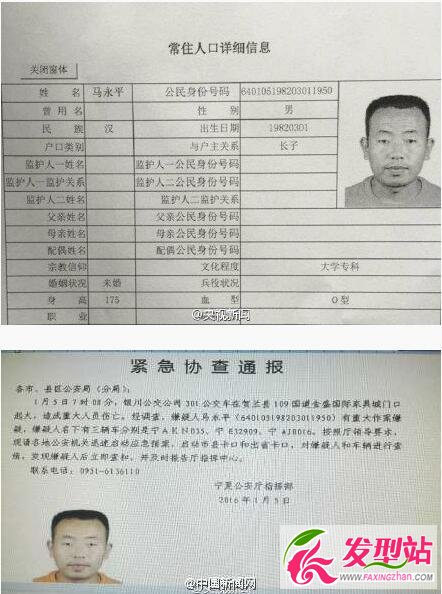 常住人口详细信息
关闭窗体
姓 名 马永平 公民身份号码 640105198203011950
曾 用 名 性 别 男
民 族 汉 出生日期 19820301
户口类别 与户主关系 长子
监护人一姓名 监护人一公民身份号码
监护人一监护关系 监护人二公民身份号码
监护人二姓名 监护人二监护关系
父亲姓名 父亲公民身份号码
母亲姓名 母亲公民身份号码
配偶姓名 配偶公民身份号码
宗教信仰 文化程度 大学专科
婚姻状况 未婚 兵役状况
身 高 175 血 型 O型
职 业
@央视新闻
紧急协查通报
各市、县区公安局(分局):
1月5日7时08分,银川公交公司301公交车在贺兰县109国道金盛国际家具城门口
起火,造成重大人员伤亡。经调查,嫌疑人马永平(640103198203011950)有重大作案嫌
疑,嫌疑人名下有三辆车分别是宁AKN035、宁E32909、宁AJ0016。按照厅领导要求,
现请各地公安机关迅速启动应急预案,启动市县卡口和出省卡口,对嫌疑人和车辆进行查
缉,发现嫌疑人后立即查扣,并及时报告厅指挥中心。
联系电话:0951-6136110
宁夏公安厅指挥部
2016年1月5日
@中国新闻网
发型站
www.FAXINGZHAN.com